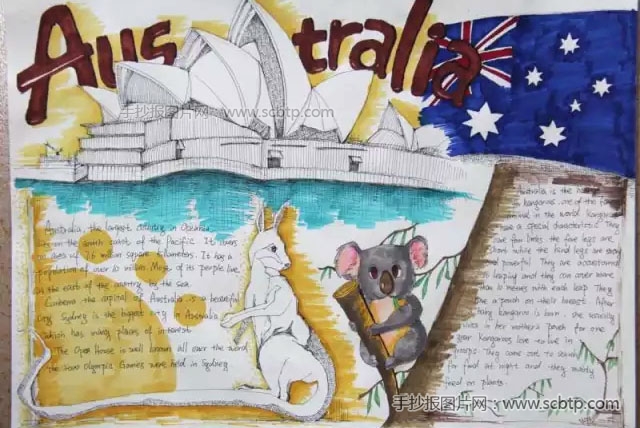 Australia
手抄报图片网:www.scbtp.com
Australia, the largest country in Oceania
in the south coast of the Pacific. It
an area of 7.6 million square kilometers. It has a
population of over 10 million. Most of its people live
in the east of the country by the sea.
Canberra the capital of Australia is a beautiful
city. Sydney is the biggest city in Australia
which has many places of interest.
The Opera House is well known all over the world
the Olympic Games were held in Sydney
Australia is the
kangaroo. one of the
animal in the world kangaroos
have a special characteristic. They
four limbs the fore legs are
while the hind legs are strong
and powerful. They are accustomed
to leaping and they can cover more
than 10 metres with each leap. They
have a pouch on their breast. After
kangaroo is born. she
lives in her mother's pouch for one
year. kangaroos love to live in
troops. They come out to search
for food at night and they mainly
feed on plants.
手抄报图片网:www.scbtp.com